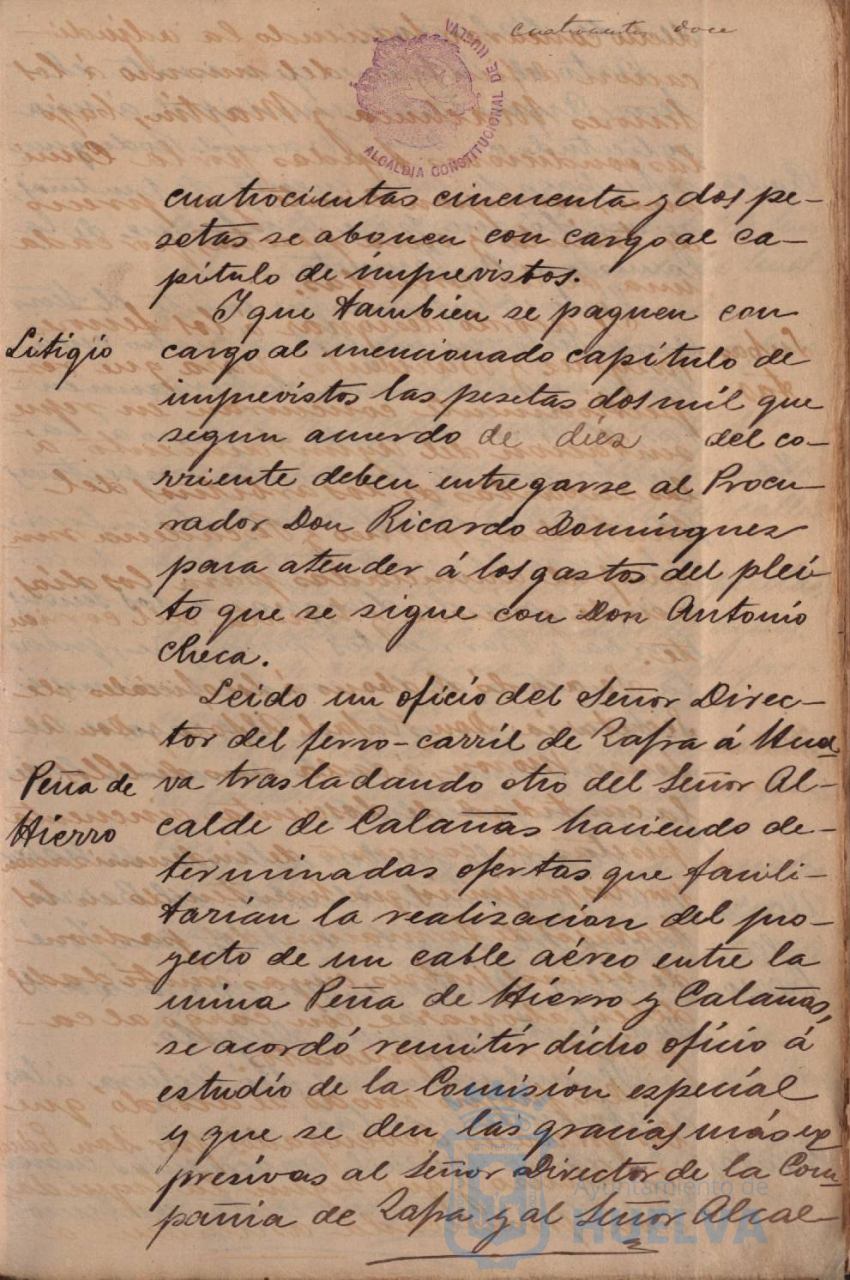 cuatrocientos doce
ALCALDIA CONSTITUCIONAL DE HUELVA
cuatrocientas cincuenta y dos pe-
setas se abonen con cargo al ca-
pítulo de imprevistos.
Y que también se paguen con
Litigio
cargo al mencionado capítulo de
imprevistos las pesetas dos mil que
segun acuerdo de diez del co-
rriente deben entregarse al Procu-
rador Don Ricardo Domínguez
para atender á los gastos del plei-
to que se sigue con Don Antonio
Checa.
Leido un oficio del Señor Direc-
tor del ferro-carril de Zafra á Huel
Peña de
Hierro
va trasladando otro del Señor Al-
calde de Calañas haciendo de-
terminadas ofertas que facili-
tarían la realización del pro-
yecto de un cable aéreo entre la
mina Peña de Hierro y Calañas,
se acordó remitir dicho oficio á
estudio de la Comisión especial
y que se den las gracias más ex
presivas al Señor Director de la Com
pañia de Zafra y al Señor Alcal-
Ayuntamiento de
HUELVA